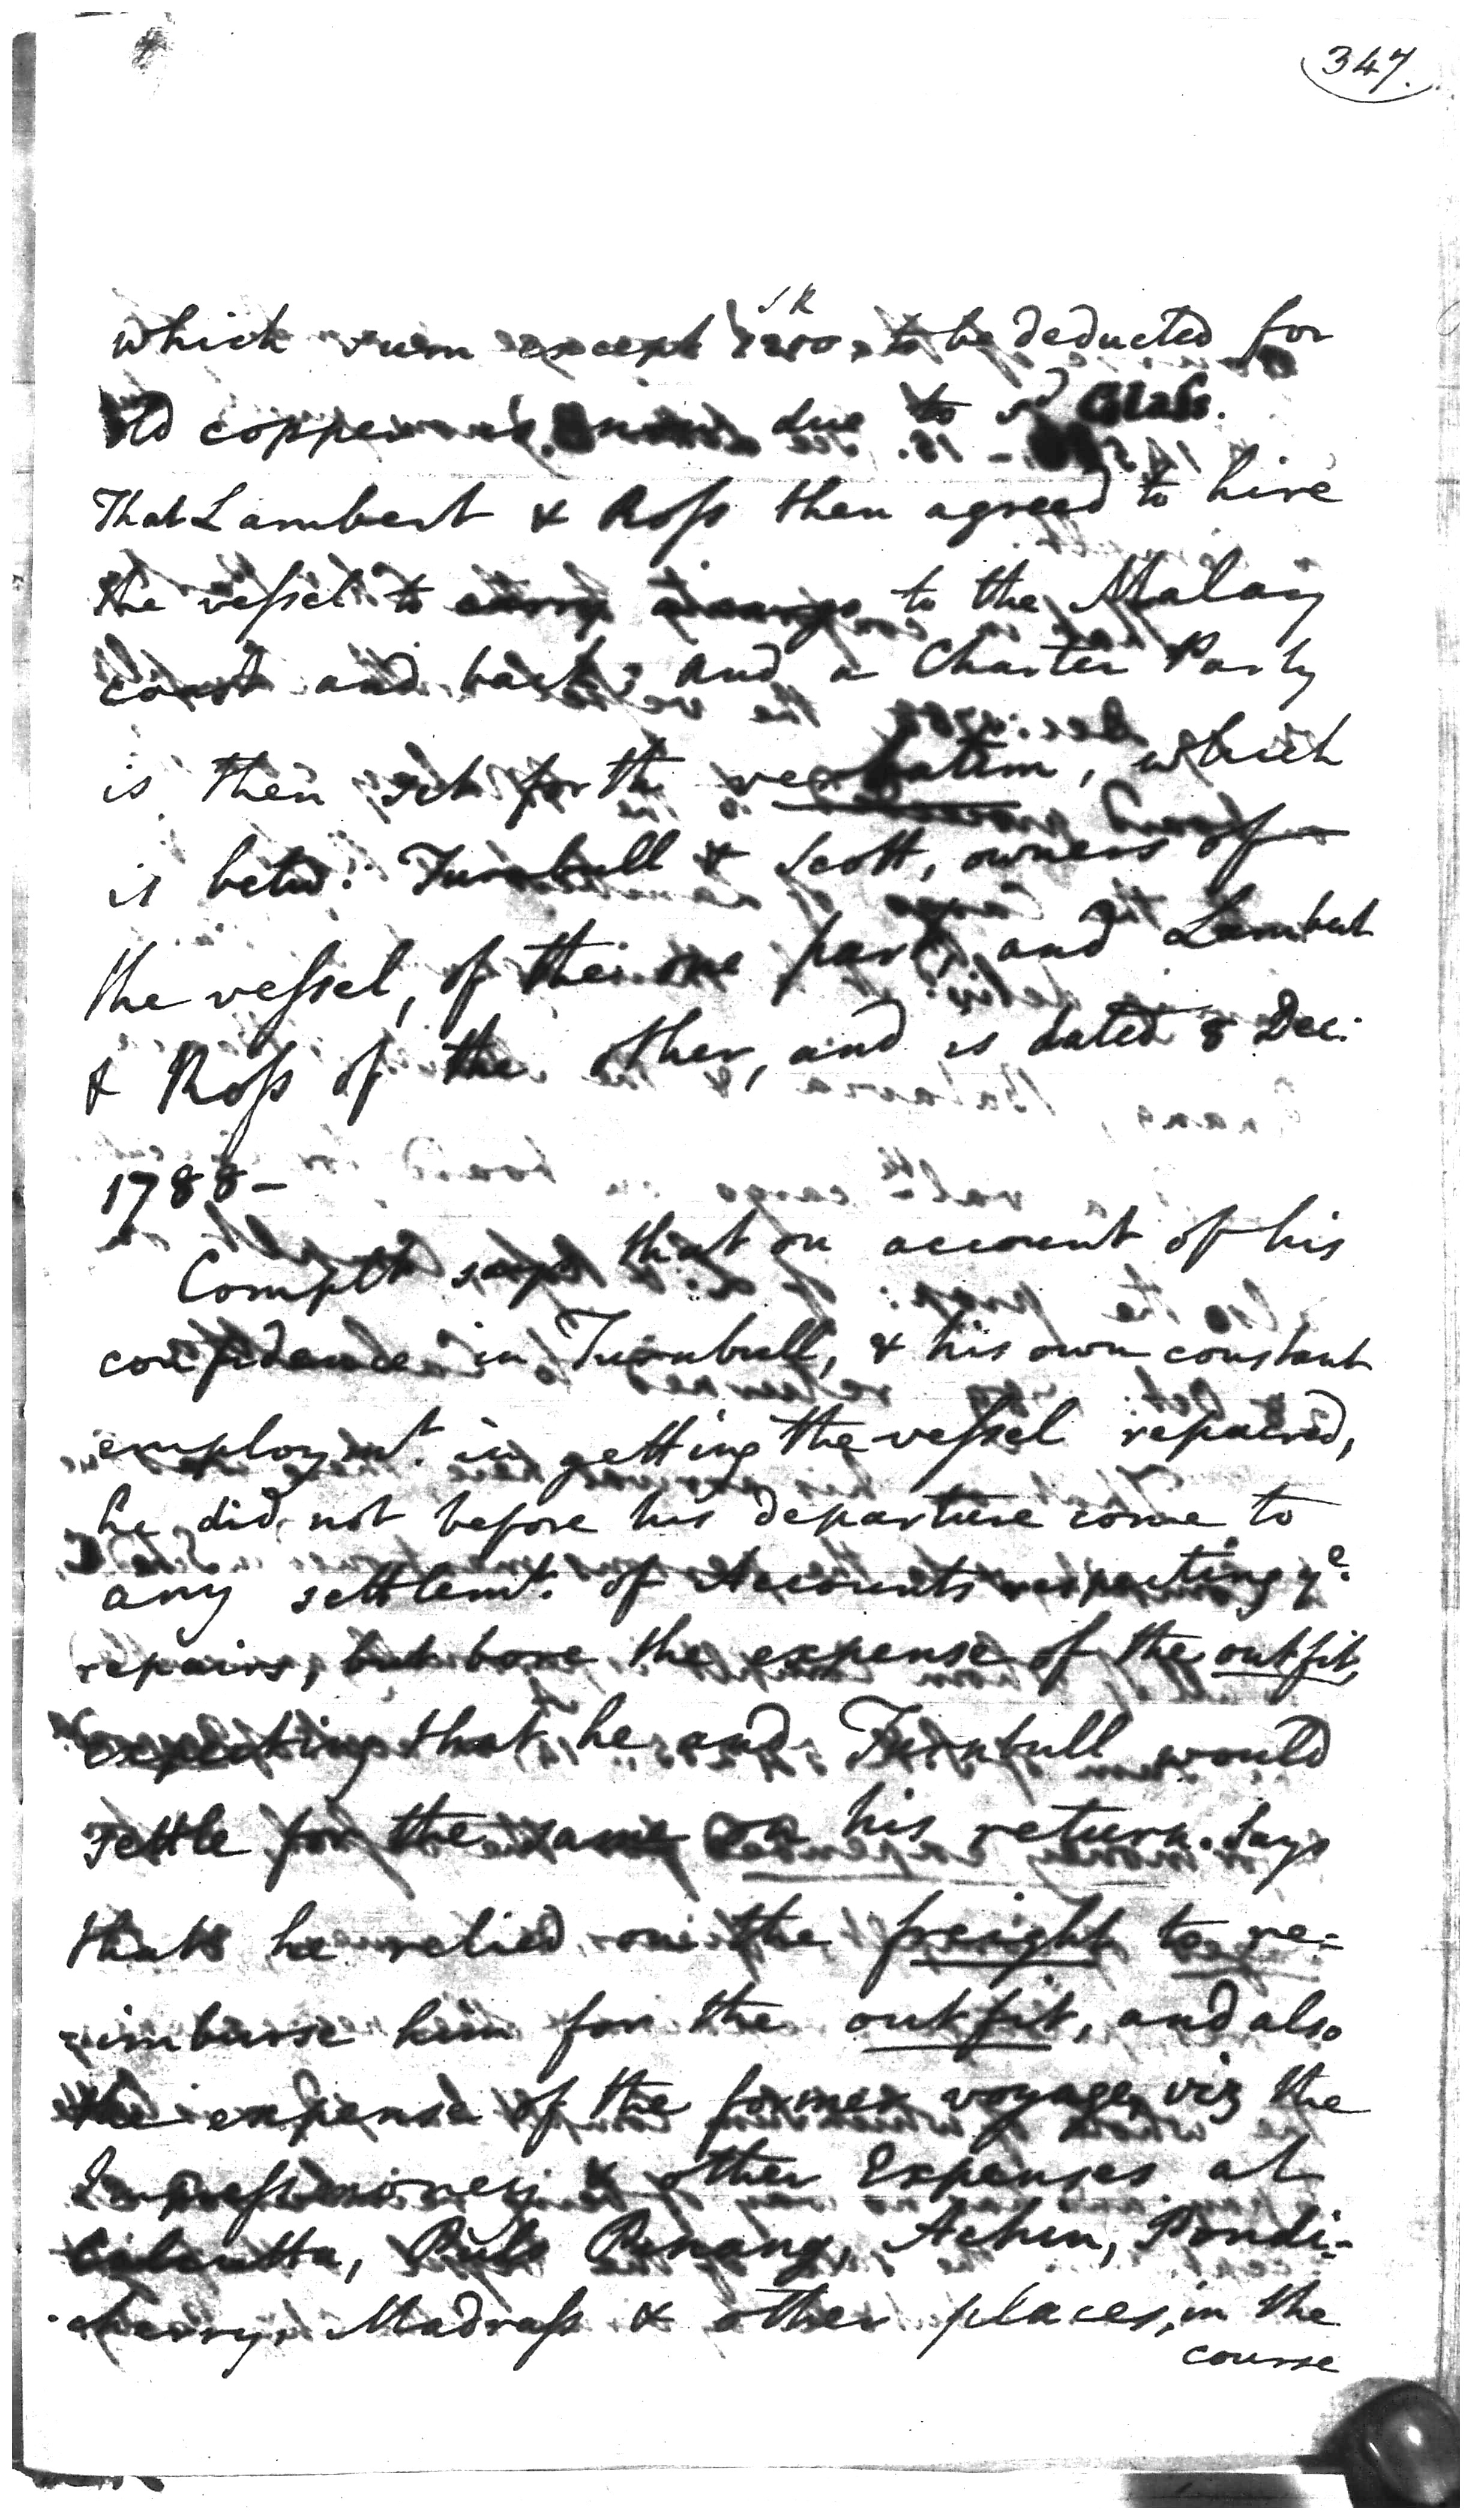 347.
which sum except to be deducted for
old copper due to sd Glass.
That Lambert & Ross then agreed to hire
the vessel to to the Malay
coast and back; and a Charter Party
is then set forth verbatim, which
is betw. Turnbull & Scott, owners of
the vessel, of the one part, and Lambert
& Ross of the other, and is dated 8 Dec.
1788 –
Complt says that on account of his
confidence in Turnbull, & his own constant
employmt. in getting the vessel repaired,
he did not before his departure come to
any settlemt. of Accounts respecting ye.
repairs, but bore the expense of the outfit,
expecting that he and Turnbull would
settle for the same on his return. Says
that he relied on the freight to re=
=imburse him for the outfit, and also
the expense of the former voyage, viz the
other Expenses at
Calcutta, Pulo Penang, Achin, Pondi-
-cherry, Madrass & other places, in the
course